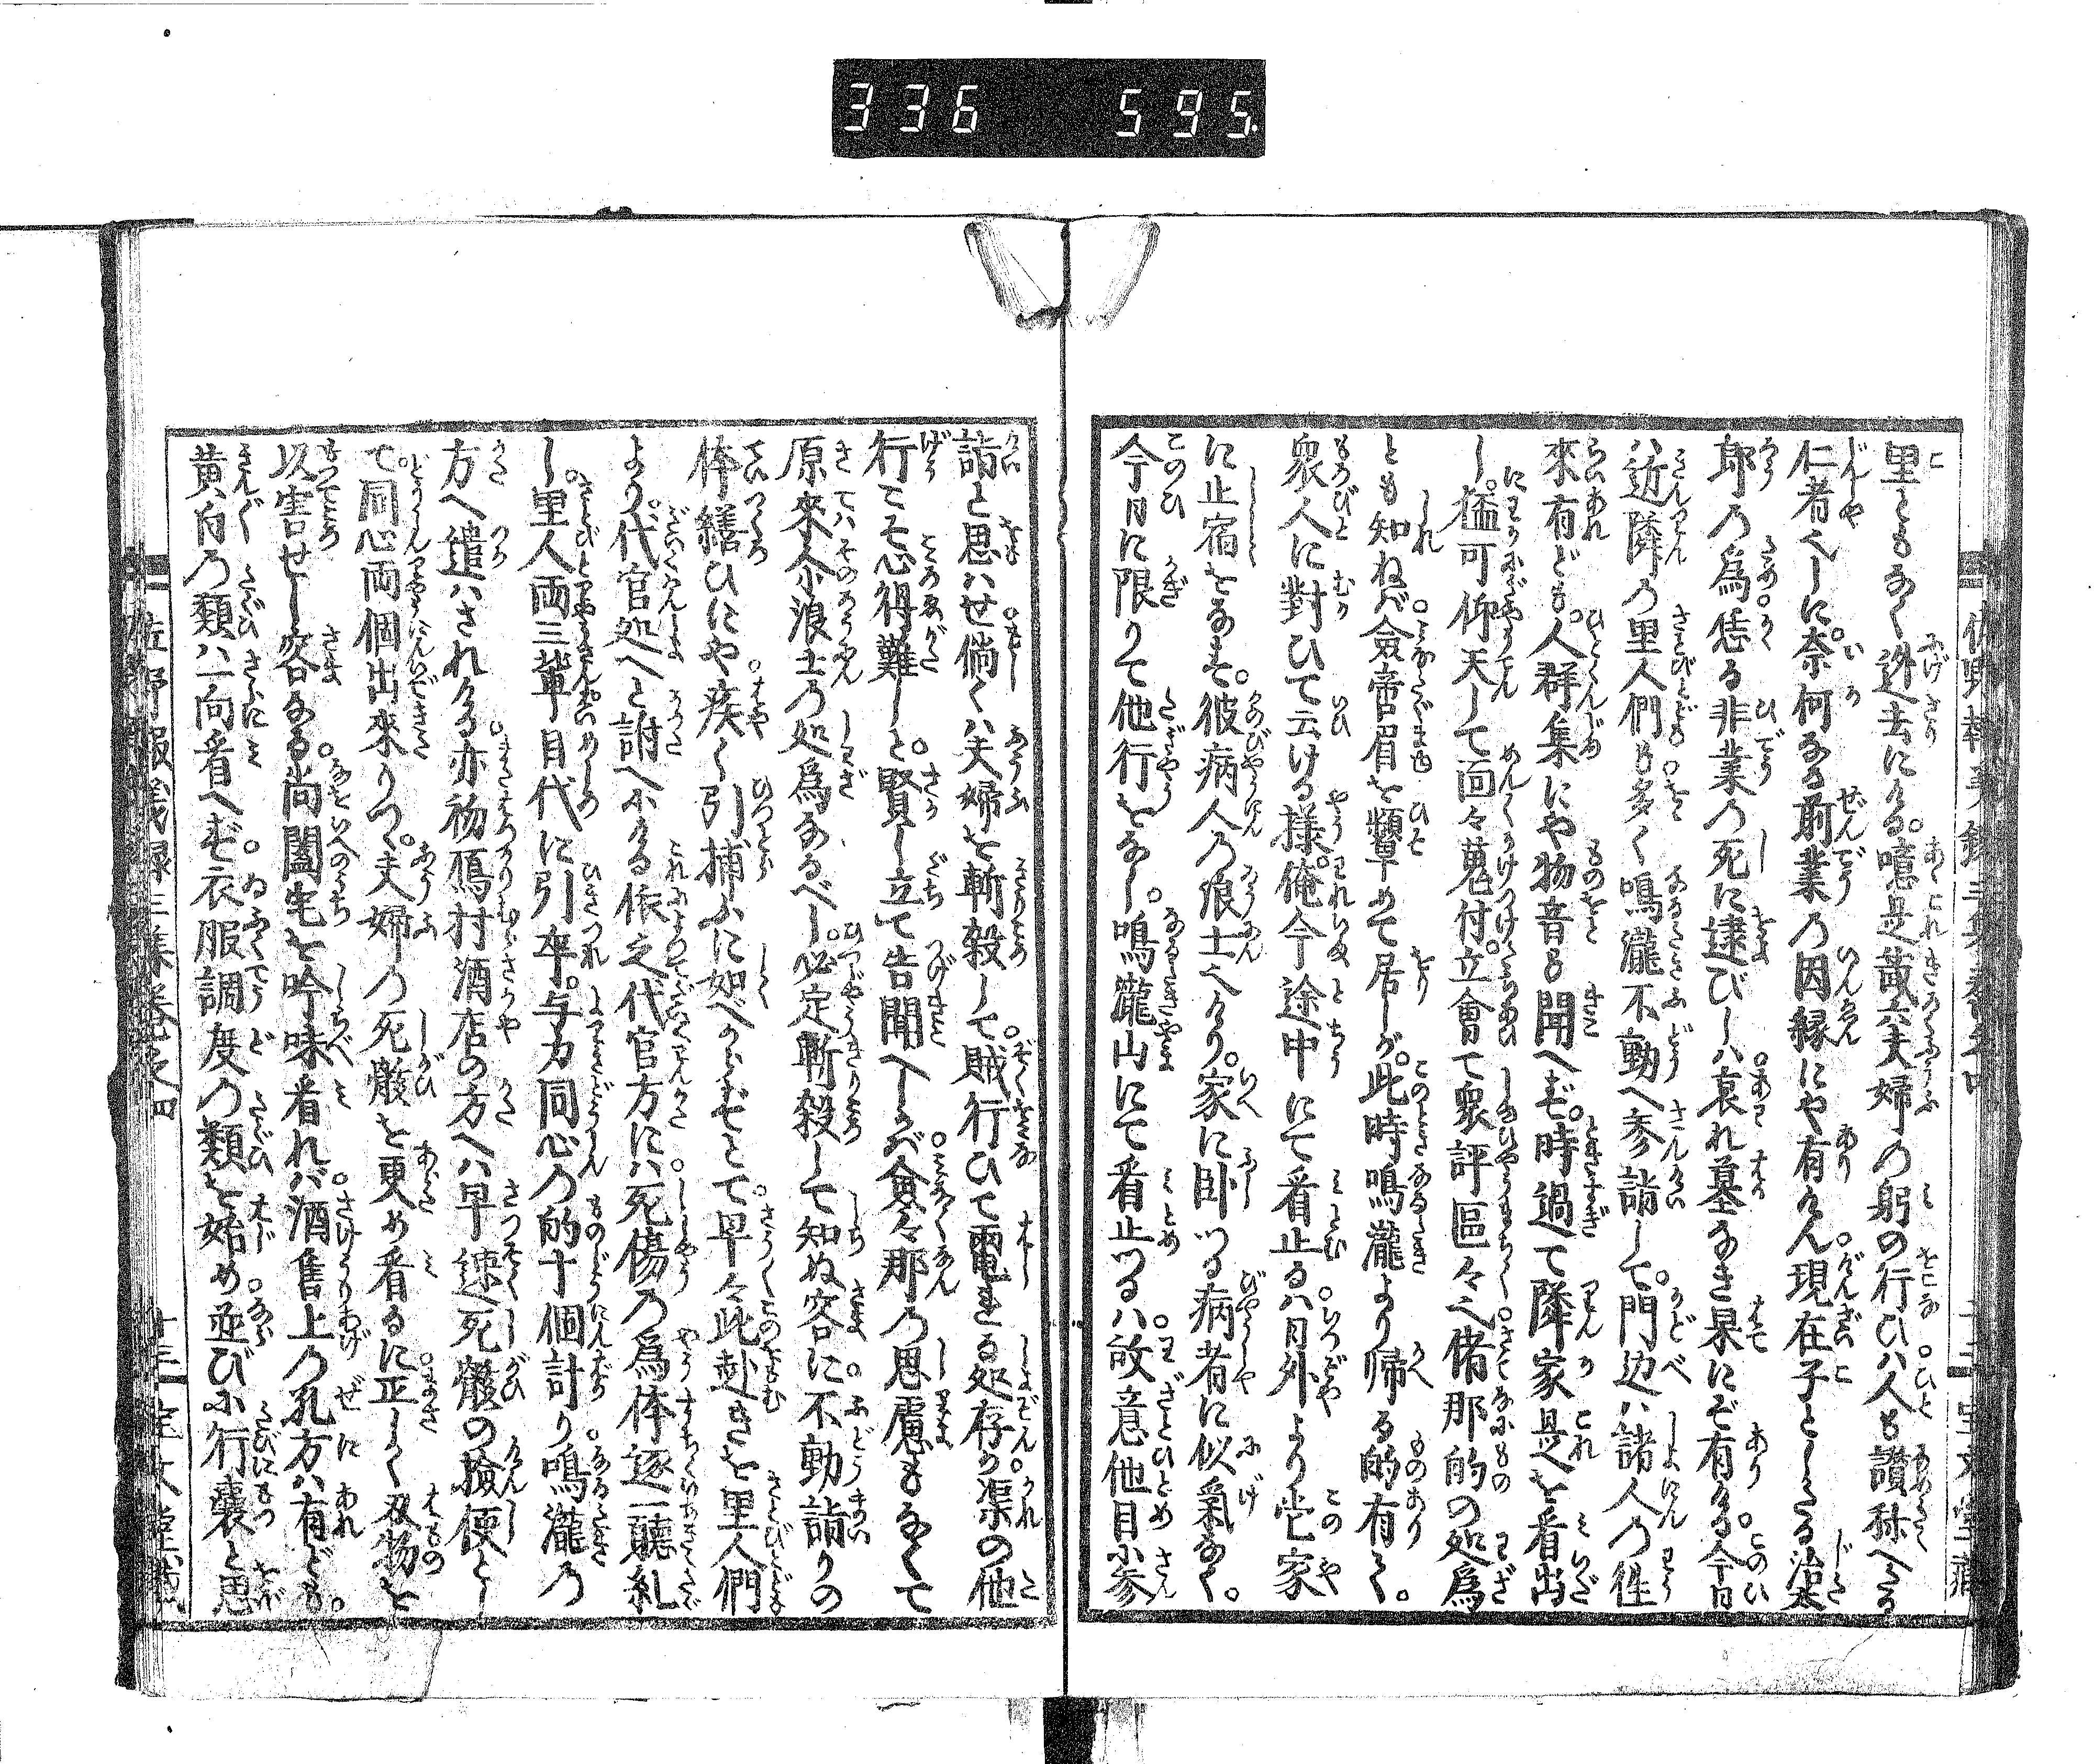 336 595
里ともなく迯去にける。噫是蔵六夫婦の躬の行ひハ人も讃称へたる
仁者なりしに。奈何なる前業の因縁にや有けん。現在子としたる治太
郎の為恁る非業の死に逮びしハ哀れ墓なき果にぞ有ける。今日
ハ近隣の里人們も多く鳴瀧不動へ参詣して。門辺ハ諸人の往
來有ども。人群集にや物音も聞へず。時過て隣家是を看出
し。猛可仰天して面々蒐付。立會て衆評區々也。偖那的の処為
とも知ねバ。僉啻眉を顰めて居しが。此時鳴瀧より帰る的有て。
衆人に對ひて云ける様。俺今途中にて看止るハ。日外より此家
に止宿をなせし。彼病人の浪士也けり。家に臥つる病者に似氣なく。
今日に限りて他行をなし。鳴瀧山にて看止つるハ。故意他目に参
詣と思ハせ。倘くハ夫婦を斬殺して。賊行ひて電逃る処存か。渠の他
行こそ心得難しと。賢し立て告聞へしかバ。僉々那の思慮もなくて
原來ハ那浪士の処為なるべし。必定斬殺して知ぬ容に不動詣りの
体繕ひにや。疾く引捕ふに如べからずとて。早々此赴きを里人們
より。代官処へと訴へ出ける。依之代官方にハ。死傷の為体逐一聽糺
し。里人両三輩目代に引卒。与力同心の的十個計り。鳴瀧の
方へ遣ハされける。亦初鴈村酒店の方へハ早速死骸の撿使とし
て。同心両個出來りつ。夫婦の死骸を更め看るに。正しく刄物を
以害せし容なる。尚闔宅を吟味看れバ。酒售上の孔方ハ有ども。
黄白の類ハ一向看へず。衣服調度の類を始め。並びに行嚢と思
佐野報義録三集巻之四
十三
宝文堂藏